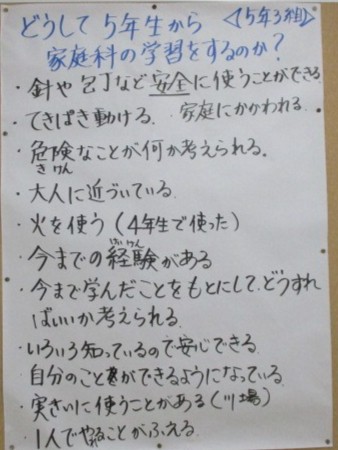 どうして5年生から 〈5年3組〉
家庭科の学習をするのか?
・針や包丁など安全に使うことができる
・てきぱき動ける。 家庭にかかわれる。
・危険なことが何か考えられる。
きけん
・大人に近づいている。
・火を使う(4年生で使った)
けいけん
・今までの経験がある
・今まで学んだことをもとにして、どうすれ
ばいいか考えられる。
・いろいろ知っているので安心できる。
自分のことができるようになっている。
・実さいに使うことがある(川場)
・1人でやることがふえる。